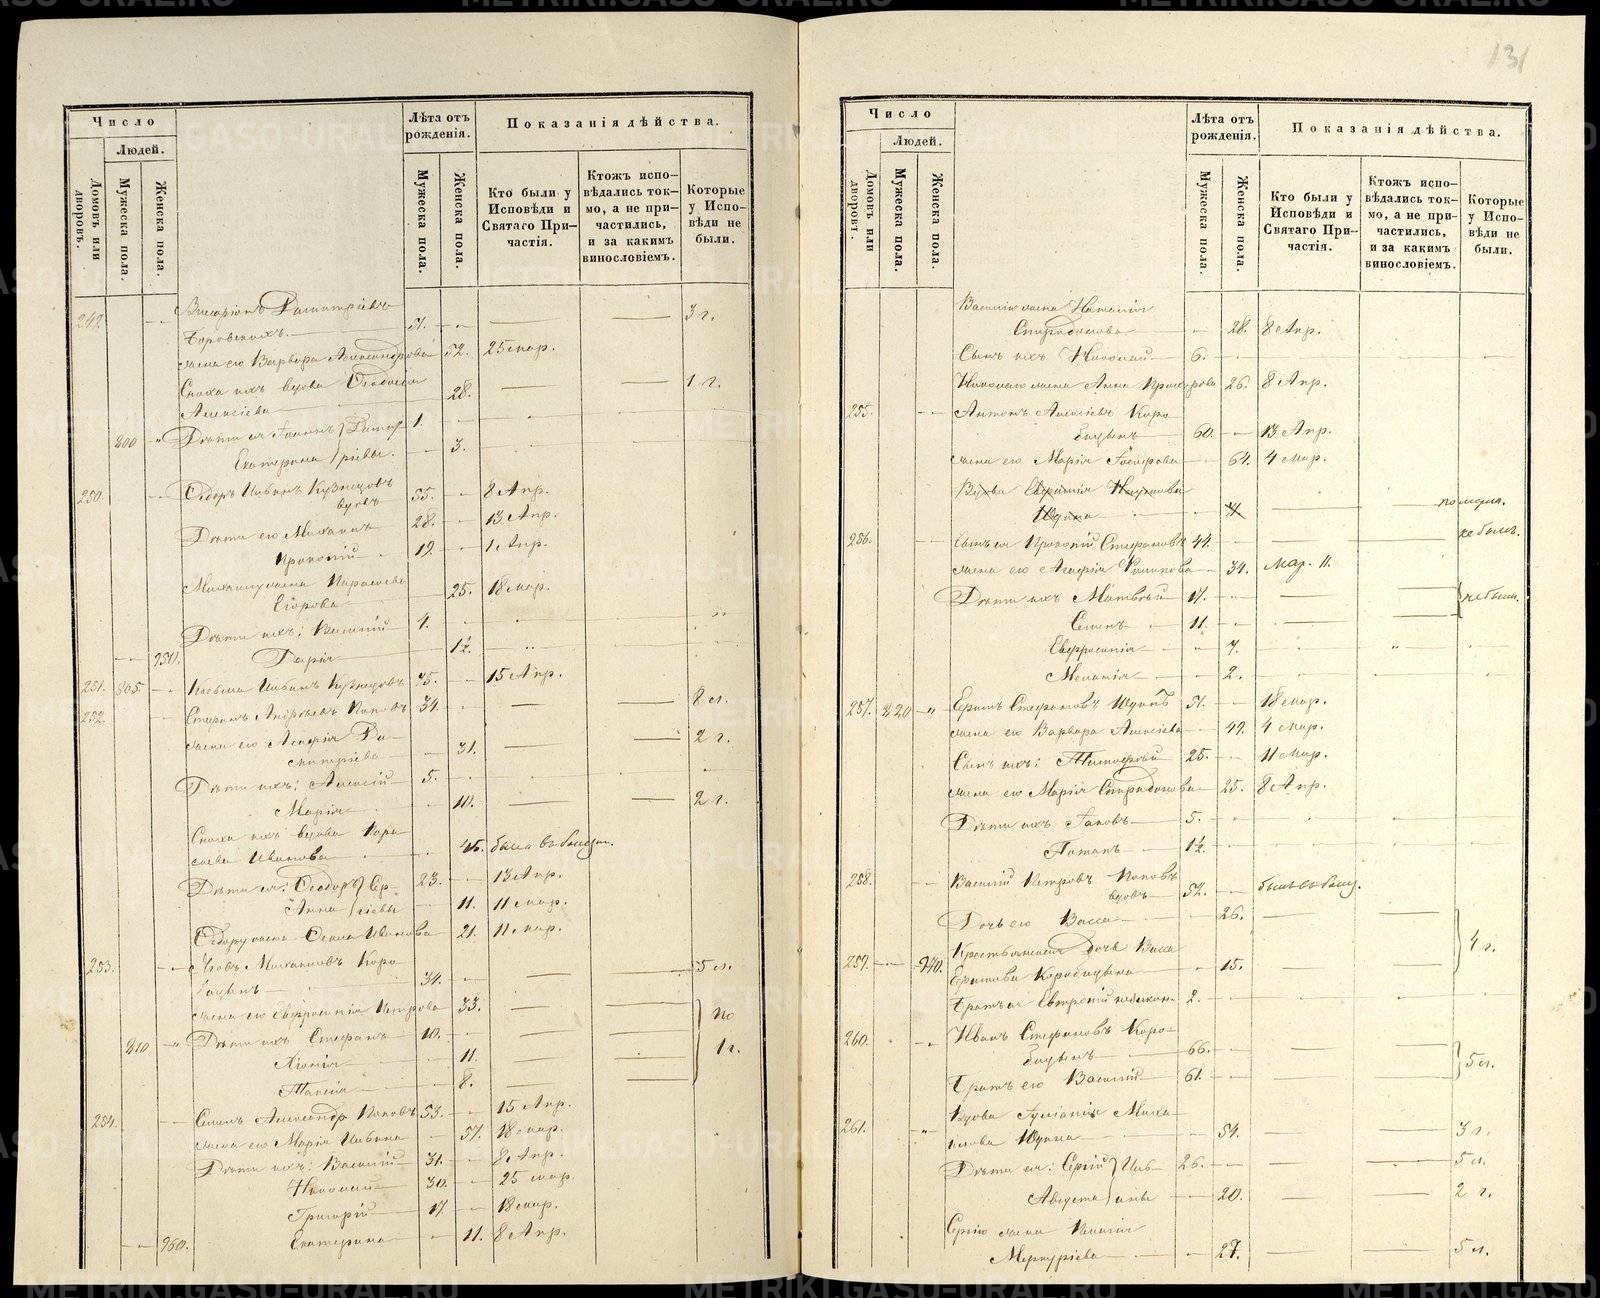 131
Число
Людей.
Домовъ или дворовъ.
Мужеска пола.
Женска пола.
Лѣта отъ рожденія.
Мужеска пола.
Женска пола.
Показанія дѣйства.
Кто были у Исповѣди и Святаго При-частія.
Ктожъ испо-вѣдались ток-мо, а не при-частились, и за какимъ винословіемъ.
Которые у Испо-вѣди не были.
249. Димитріевъ
Боровскихъ. 51. 3 г.
жена его Варвара Александрова 52. 25 мар.
Сноха ихъ вдова Ѳеодосія 28. 1 г.
Алексіева
800 Дѣти ея Іоаннъ 1.
Екатерина 3.
250. Ѳедоръ Ивановъ Кузнецовъ
вдовъ 55. 8 Апр.
Дѣти его Михаилъ 28. 13 Апр.
Прокопій 19. 1 Апр.
Михаилу жена Параскева
Егорова 25. 18 мар.
Дѣти ихъ: Василій 4.
950. Дарія 1½.
251. 805. Козьма Ивановъ Кузнецовъ 45. 15 Апр.
252. Стефанъ Андреевъ Поповъ 34. 8 л.
жена его Агафія Ди-
митріева 31. 2 г.
Дѣти ихъ: Алексій 5.
Марія 10. 2 г.
Сноха ихъ вдова Пара
скева Иванова 45. была въ болезн.
Дѣти ея: Ѳеодоръ Сер- 23. 13 Апр.
Анна гіевы 11. 11 мар.
Ѳедору жена Анна Иванова 21. 11 мар.
253. Яковъ Михаиловъ Коро
бицынъ 34. 5 л.
жена его Евфросинія Петрова 33. по
810 Дѣти ихъ Стефанъ 10. 1 г.
Хіонія 11.
Таисія 8.
254. Симонъ Александр. Поповъ 53. 15 Апр.
жена его Марія Иванова 57. 18 мар.
Дѣти ихъ: Василій 31. 8 Апр.
Николай 30. 25 мар.
Григорій 17. 18 мар.
960. Екатерина 11. 8 Апр.
Число
Людей.
Домовъ или дворовъ.
Мужеска пола.
Женска пола.
Лѣта отъ рожденія.
Мужеска пола.
Женска пола.
Показанія дѣйства.
Кто были у Исповѣди и Святаго При-частія.
Ктожъ испо-вѣдались ток-мо, а не при-частились, и за какимъ винословіемъ.
Которые у Испо-вѣди не были.
Василію жена Наталія
Спиридонова 28. 8 Апр.
Сынъ ихъ Николай 6.
Николаю жена Анна Прохорова 26. 8 Апр.
255. Антонъ Алексіевъ Коро
бицынъ 60. 13 Апр.
жена его Марія Іосифова 64. 4 мар.
Вдова Наумова
Юдина померла.
256. Сынъ ея Прокопій Стефановъ 44. не былъ.
жена его Агафія Филипова 34. Мар. 11.
Дѣти ихъ Матвѣй 17. не были.
Семенъ 11.
Евфросинія 7.
Меланія 2.
257. 820 Ермилъ Стефановъ Юдинъ 51. 18 мар.
жена его Варвара Алексіева 49. 4 мар.
Сынъ ихъ: Тимофей 25. 11 мар.
жена его Марія Спиридонова 25. 8 Апр.
Дѣти ихъ Іаковъ 5.
Потапъ 1½.
258. Василій Петровъ Поповъ
вдовъ 52. былъ въ болез.
Дочь его Васса 26.
Крестьянская дочь Васса 4 г.
259. 970. Коробицына 15.
Братъ ея 2.
260. Иванъ Стефановъ Коро-
бицынъ 66. 5 л.
Братъ его Василій 61.
Вдова Іуліанія Миха
261. илова Юдина 54. 3 г.
Дѣти ея: Сергій Ив- 26. 5 л.
Августа ановы 20. 2 г.
Сергію жена Пелагія
Меркуріева 27. 5 л.
METRIKI.GASO-URAL.RU